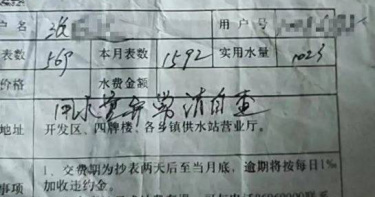 名 张 用户号
表数 569 本月表数 1592 实用水量 1023
价格 水费金额
用水异常 请自查
地址 开发区、四牌楼、各乡镇供水站营业厅。
1、交费期为抄表两天后至当月底,逾期将按每日1‰
事项 加收违约金。